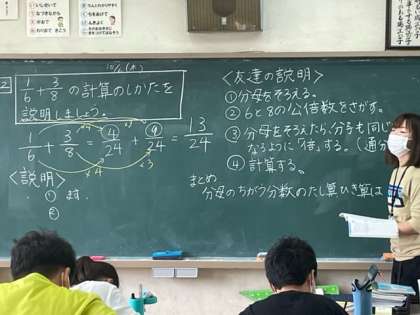 10/12(木)
2
1/6+3/8の計算のしかたを
説明しましょう。
1/6 + 3/8 = 4/24 + 9/24 = 13/24
×4
×3
<説明>
① まず
②
<友達の説明>
①分母をそろえる。
②6と8の公倍数をさがす。
③分母をそろえたら、分子も同じ
なるように「倍」する。(通分
④計算する。
まとめ
分母のちがう分数のたし算ひき算は